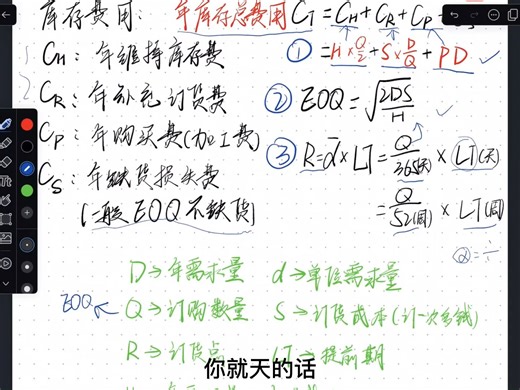 库存费用: 年库存总费用 C_T = C_H + C_R + C_P
C_H: 年维持库存费
① = H×Q/2 + S×D/Q + PD
C_R: 年补充订货费
② EOQ = √(2DS/H)
C_P: 年购买费(加工费)
③ R = d̄ × LT = Q/365(天) × LT(天)
C_S: 年缺货损失费
= Q/52(周) × LT(周)
(一般 EOQ 不缺货)
Q = ÷
D → 年需求量 d → 单位需求量
EOQ ← Q → 订购数量 S → 订货成本(订一次多钱)
R → 订货点 LT → 提前期
你就天的话